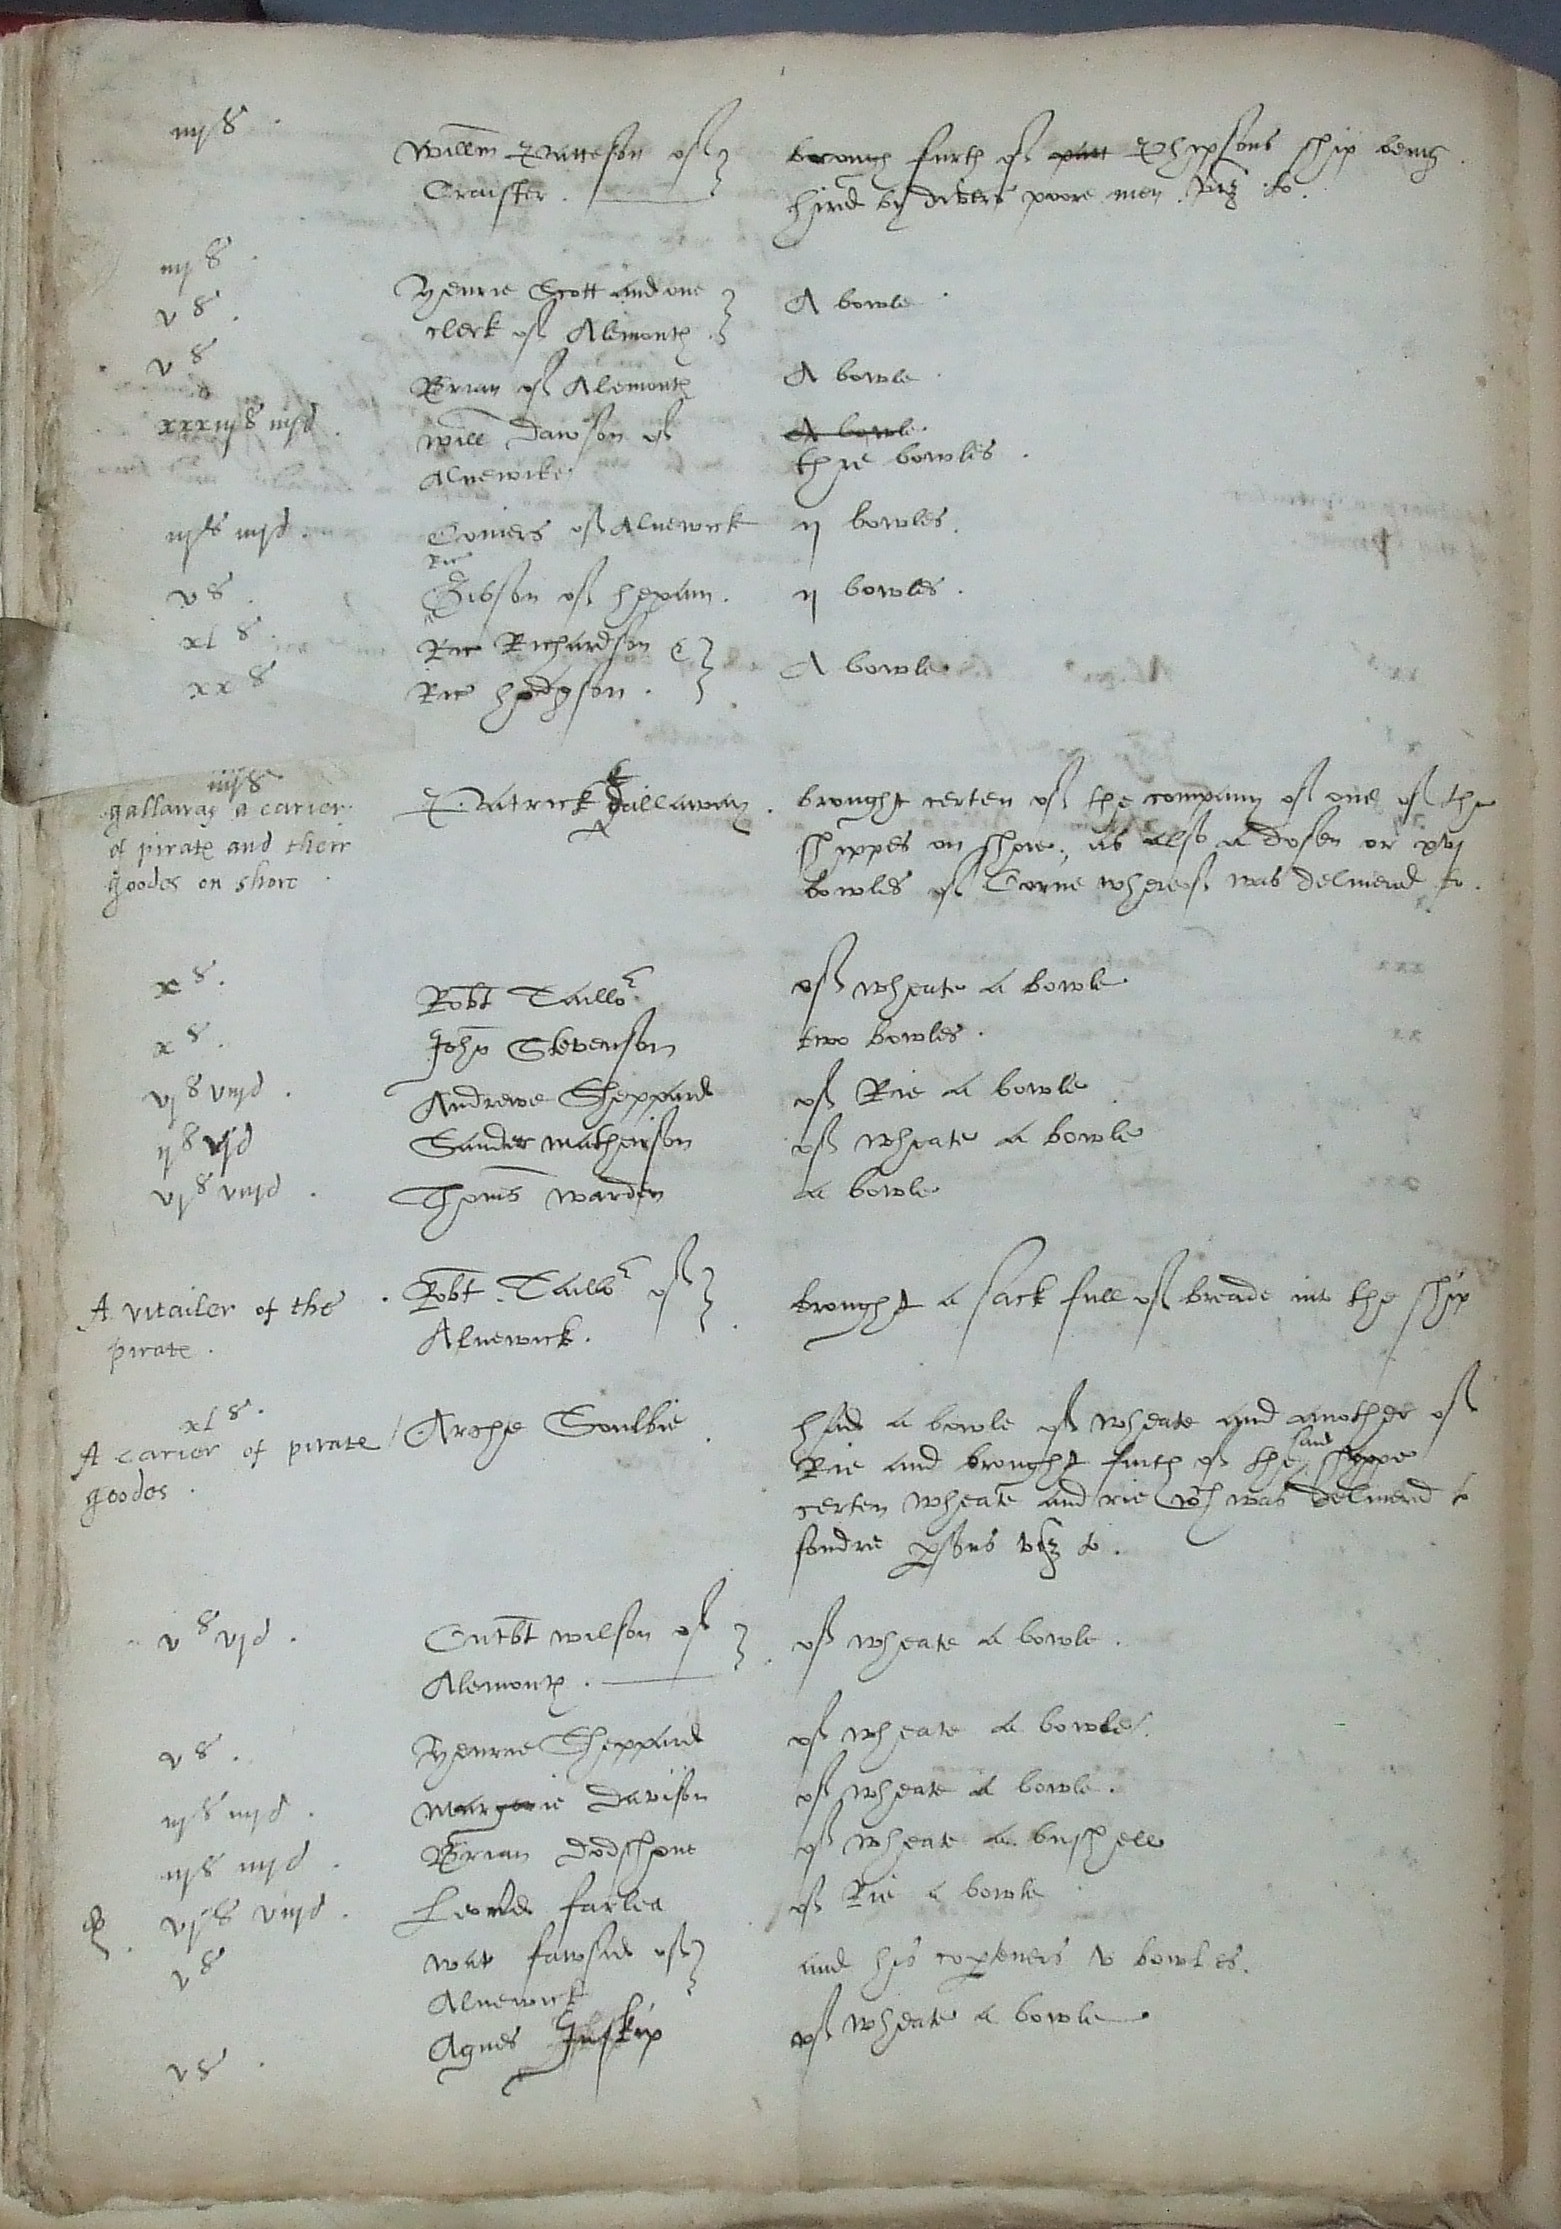 iiij s
Willm Patteson of
Craister
brough furth of Phipsons ship being
hired by divers poore men viz to
iiij s
Henrie Scott and one
A bowle
v s
clerk of Alemouth
v s
Brian of Alemouth
A bowle
xxxiij s iiij d
Will Dawson of
A bowle
Alnewike
thre bowles
iij s iiij d
Coniers of Alnewick
ij bowles
Ric
v s
Gibson of hexam
ij bowles
xl s
Ric Richardson &
A bowle
xx s
Ric hodgson
iiij s
gallaway a carier
of pirate and their
goodes on shore
Patrick Gallaway
brought certen of the company of one of the
shippes on shore, as also a dosen or xvj
bowles of Corne whereof was deliuered to
x s
Robt Taillor
of wheate a bowle
x s
John Stevenson
two bowles
vj s viij d
Andrewe Sheppard
of Rie a bowle
ij s vj d
Sander matheison
of wheate a bowle
vj s viij d
Thoms warden
a bowle
A vitailer of the
pirate
Robt Taillor of
Alnewick
brought a sack full of breade into the ship
xl s
A carier of pirate
goodes
Archie Soulbie
had a bowle of wheate and another of
Rie and brought furth of the said shippe
certen wheate and rie wch was deliuered to
sondre psons viz to
v s vj d
Cutbt wilson of
Alemouth
of wheate a bowle
v s
Henrie Sheppard
of wheate a bowle
iij s iiij d
Margerie Davison
of wheate a bowle
iij s iiij d
Brian dodshone
of wheate a bushell
vj s viij d
farlea
of Rie a bowle
v s
Wat fawsid of
Alnewick
and his copteners v bowles
v s
Agnes Inskip
of wheate a bowle